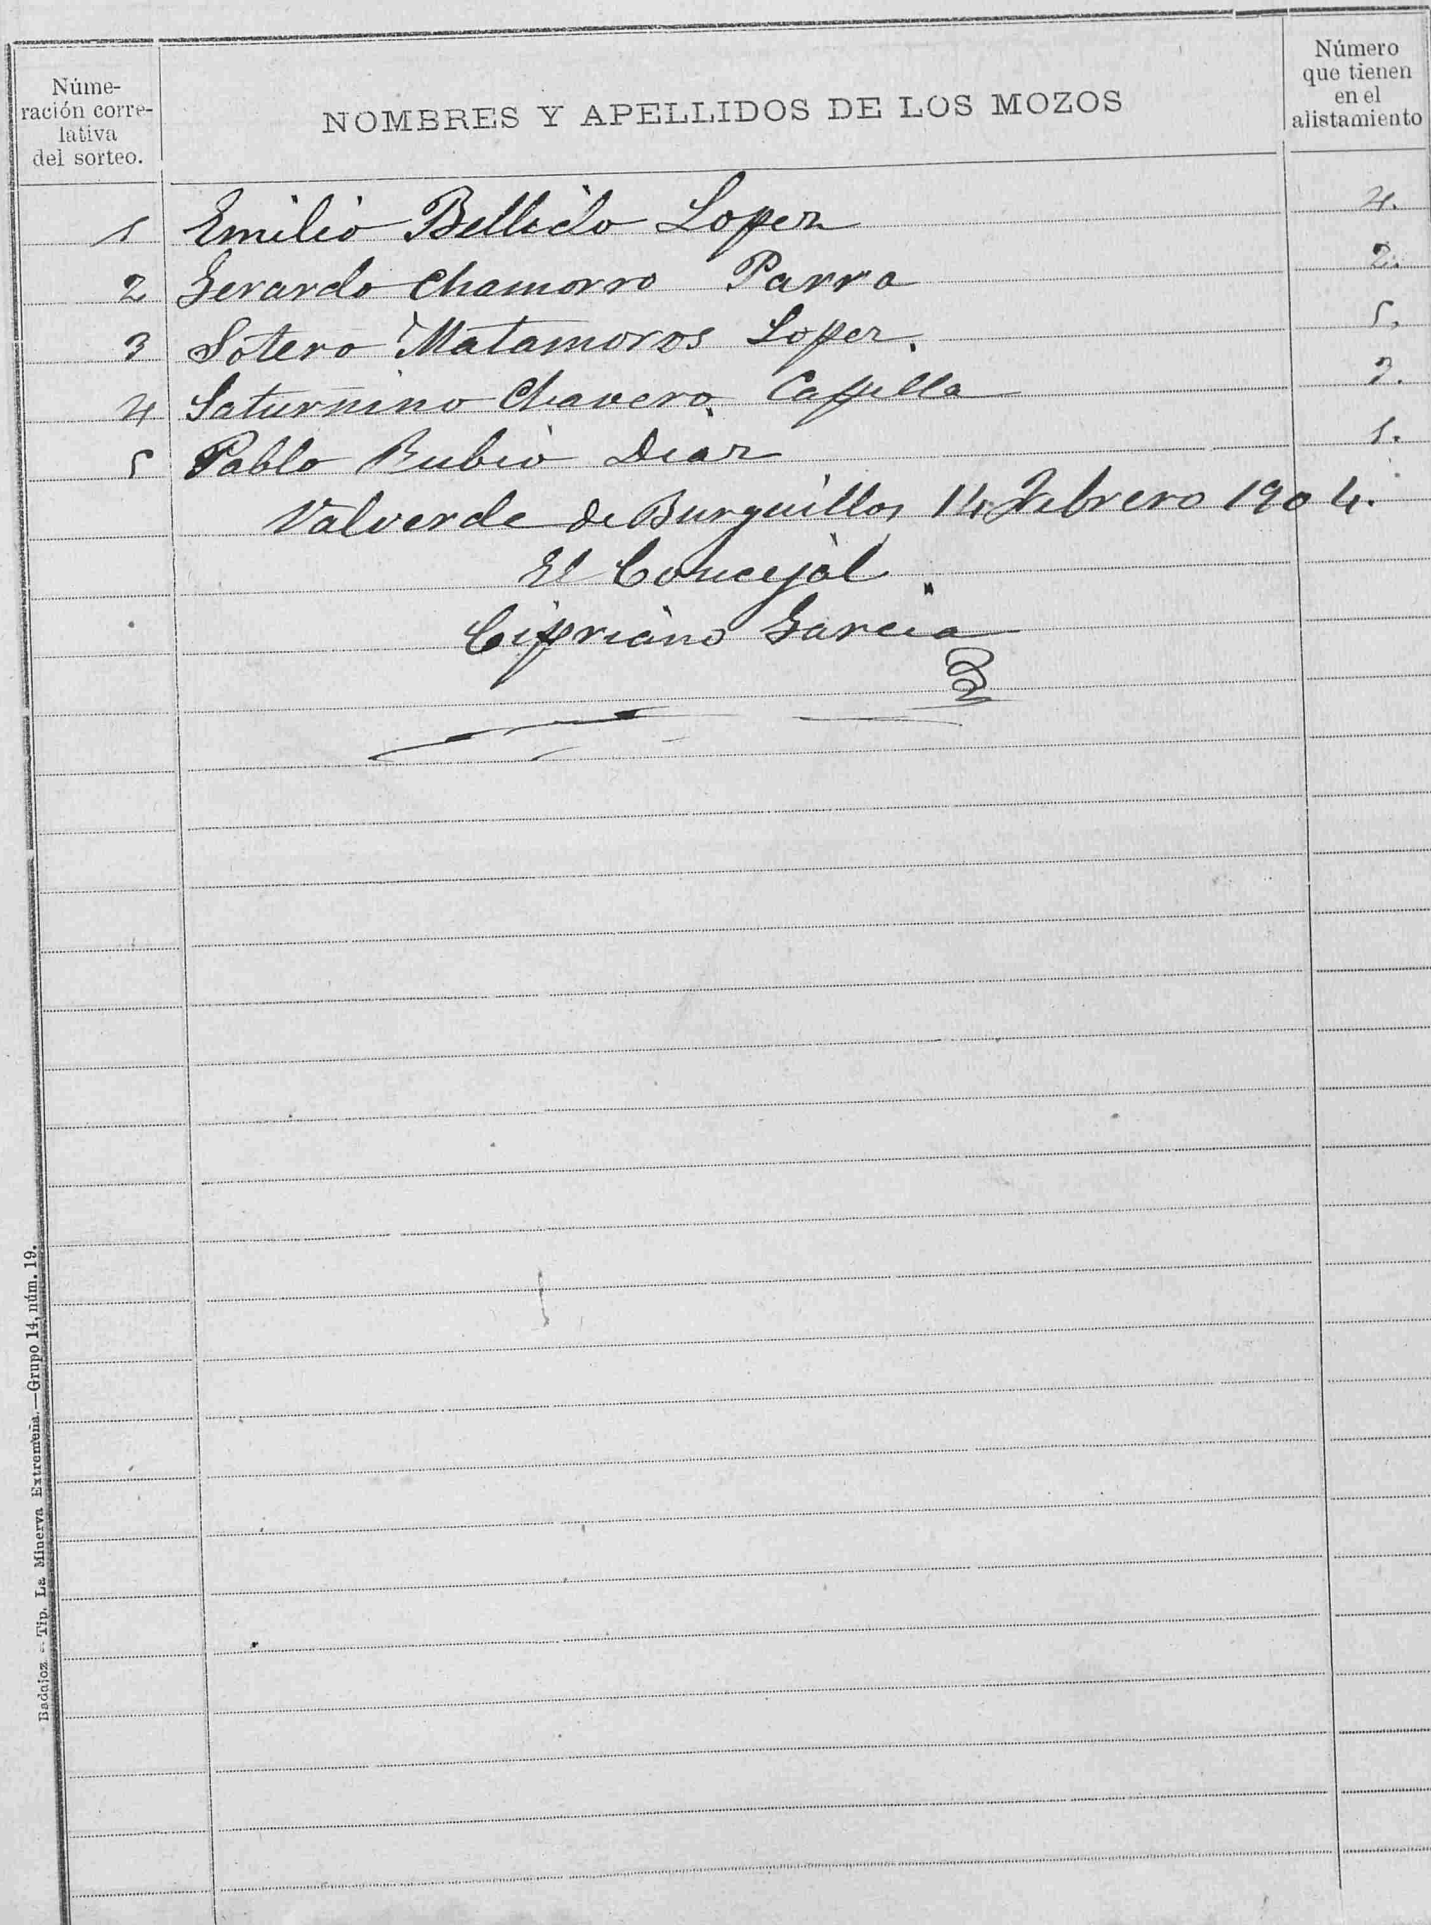 Núme-
ración corre-
lativa
del sorteo.
NOMBRES Y APELLIDOS DE LOS MOZOS
Número
que tienen
en el
alistamiento
1 Emilio Bellido Lopez 4.
2 Gerardo Chamorro Parra 2.
3 Sotero Matamoros Lopez. 5.
4 Saturnino Chavero Capilla 3.
5 Pablo Rubio Diaz 1.
Valverde de Burguillos 14 Febrero 1904.
El Concejal
Cipriano Garcia
Badajoz.—Tip. La Minerva Extremeña.—Grupo 14, núm. 19.